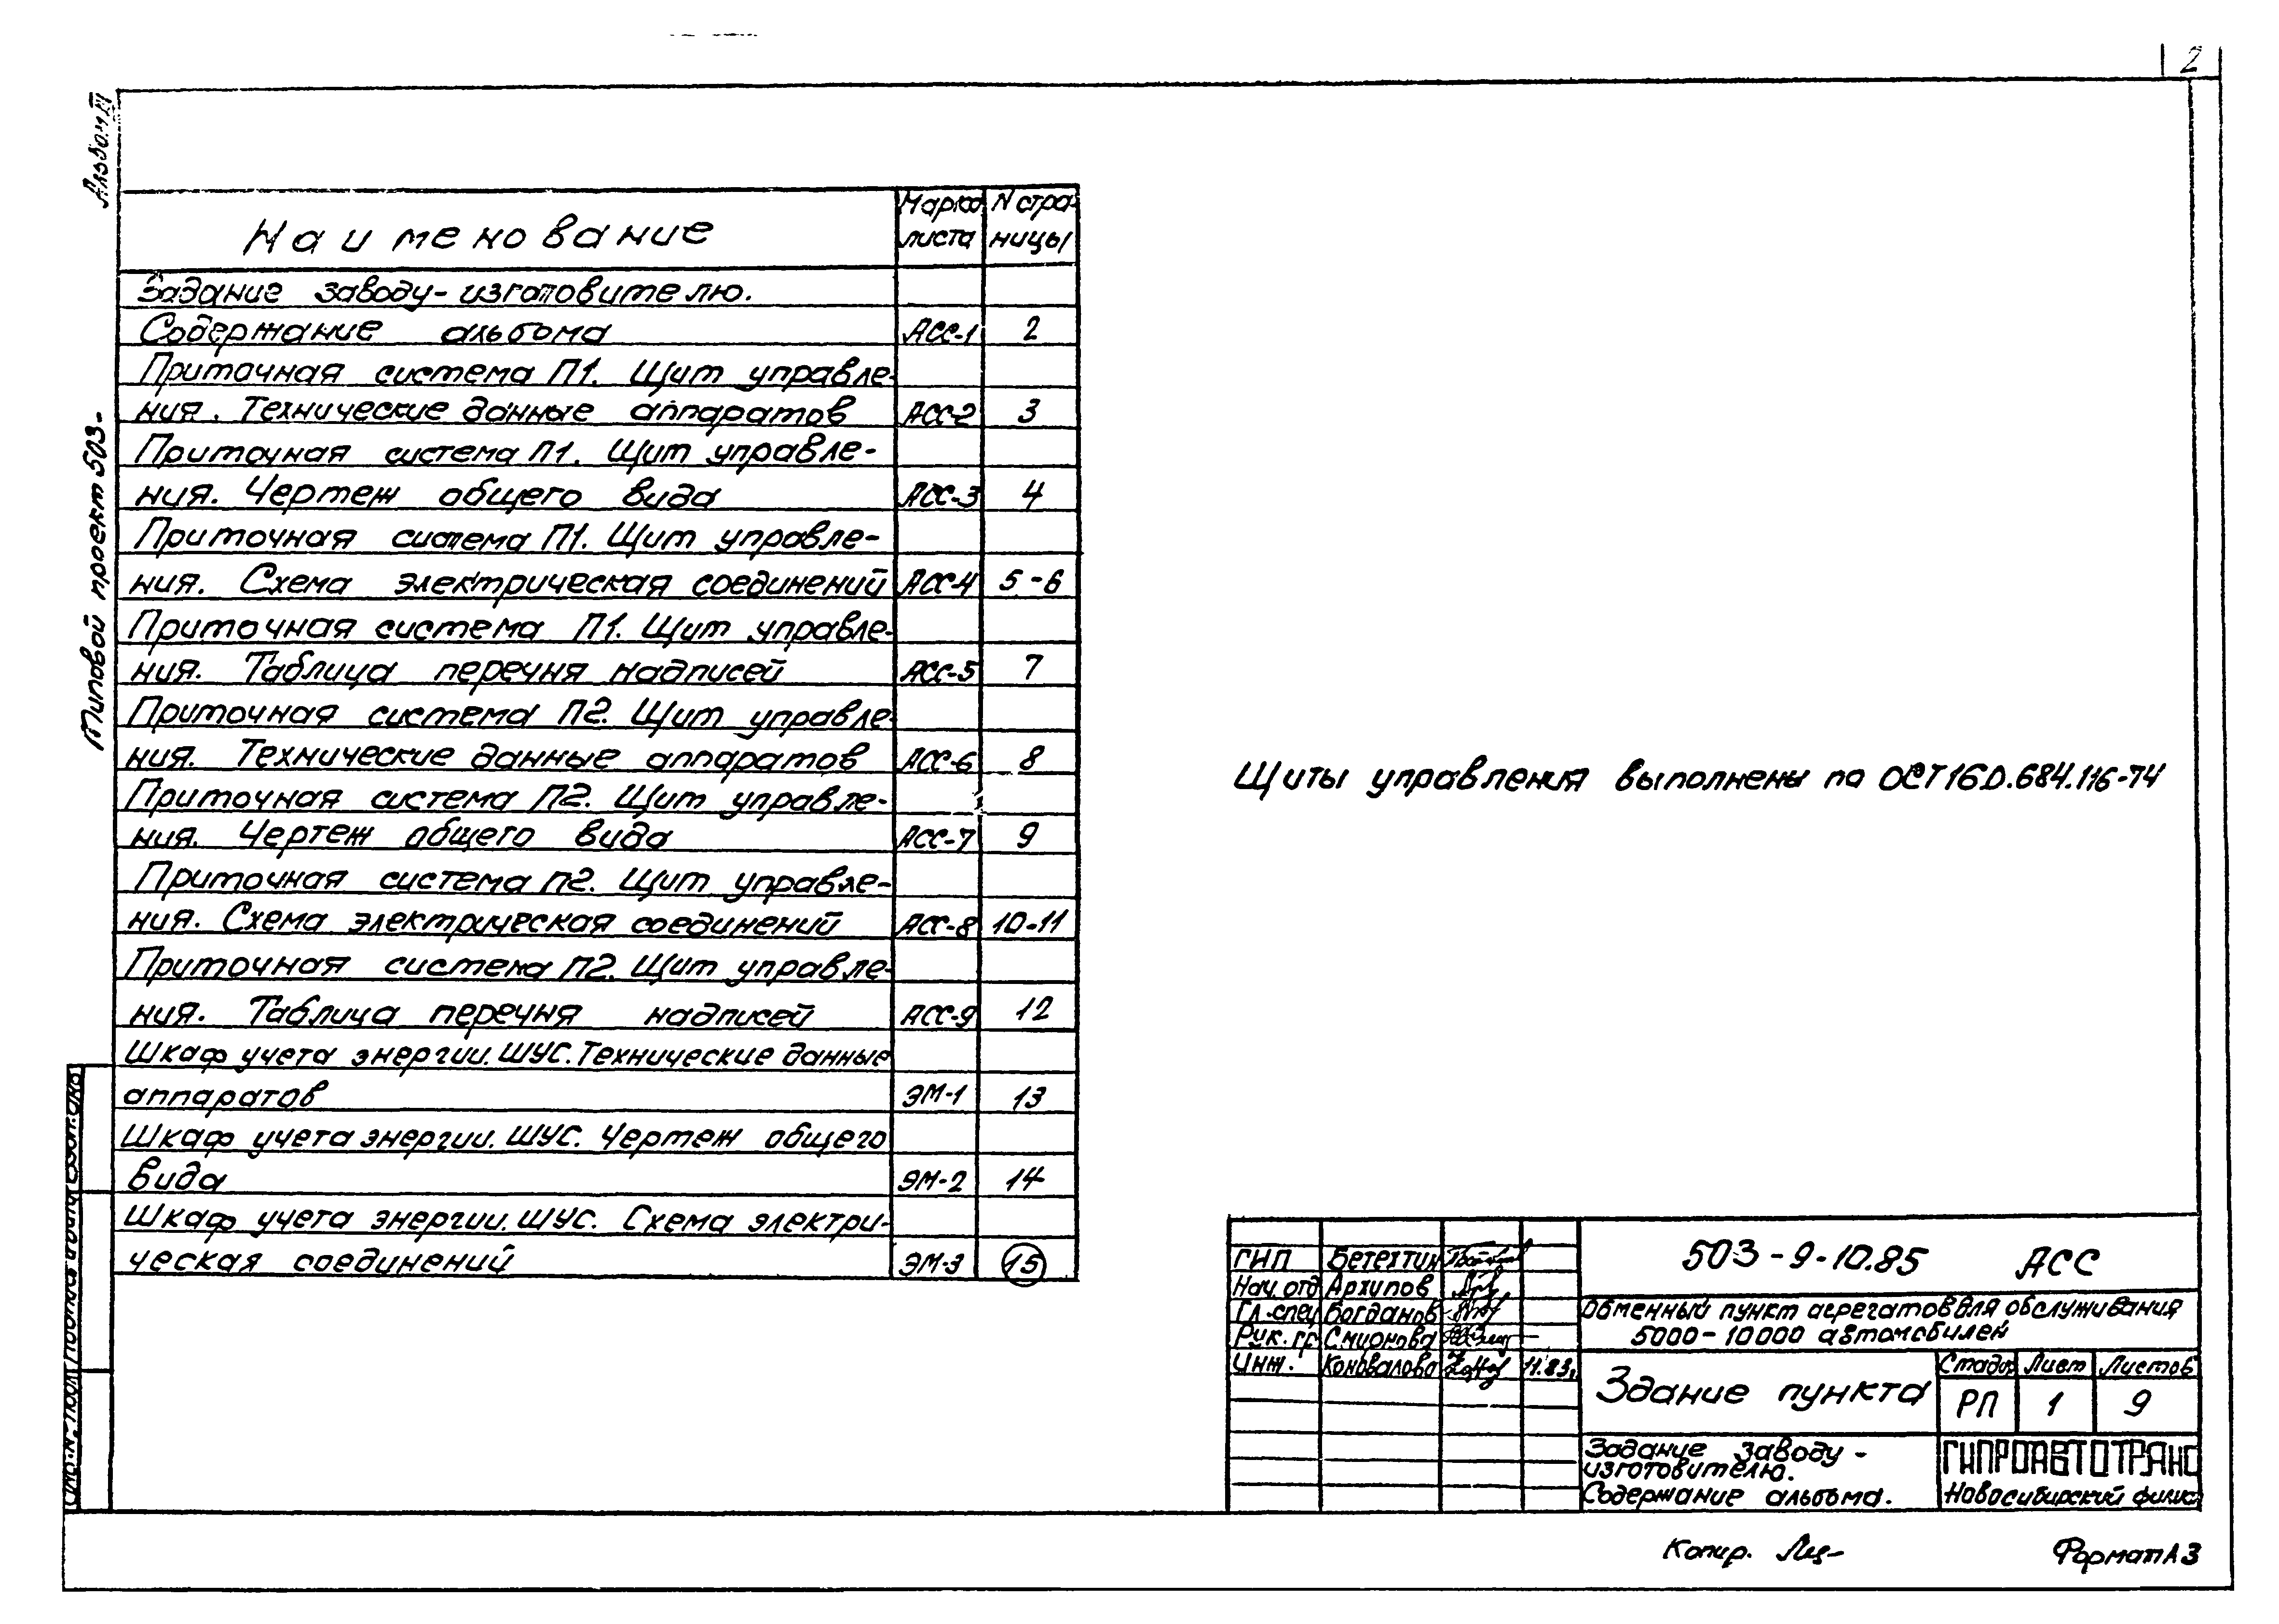 2
Альбом
Типовой проект 503-
Наименование
Марка листа
N страницы
Задание заводу-изготовителю.
Содержание альбома АСС-1 2
Приточная система П1. Щит управле-
ния. Технические данные аппаратов АСС-2 3
Приточная система П1. Щит управле-
ния. Чертеж общего вида АСС-3 4
Приточная система П1. Щит управле-
ния. Схема электрическая соединений АСС-4 5-6
Приточная система П1. Щит управле-
ния. Таблица перечня надписей АСС-5 7
Приточная система П2. Щит управле-
ния. Технические данные аппаратов АСС-6 8
Приточная система П2. Щит управле-
ния. Чертеж общего вида АСС-7 9
Приточная система П2. Щит управле-
ния. Схема электрическая соединений АСС-8 10-11
Приточная система П2. Щит управле-
ния. Таблица перечня надписей АСС-9 12
Шкаф учета энергии. ШУС. Технические данные
аппаратов ЭМ-1 13
Шкаф учета энергии. ШУС. Чертеж общего
вида ЭМ-2 14
Шкаф учета энергии. ШУС. Схема электри-
ческая соединений ЭМ-3 15
Щиты управления выполнены по ОСТ16 0.684.116-74
ГИП Бетехтин
Нач. отд Архипов
Гл.спец Богданов
Рук. гр. Смирнова
Инж. Коновалова 11.83
503-9-10.85 АСС
Обменный пункт агрегатов для обслуживания
5000-10000 автомобилей
Здание пункта
Стадия Лист Листов
РП 1 9
Задание заводу-
изготовителю.
Содержание альбома.
ГИПРОАВТОТРАНС
Новосибирский филиал
Копир.
Формат А3